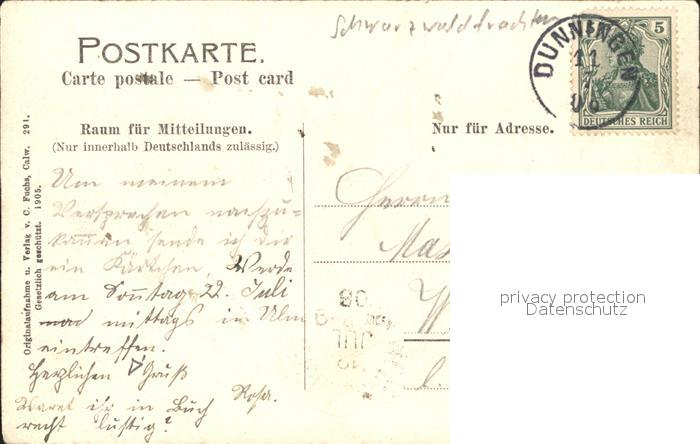 Schwarzwaldtrachten
POSTKARTE.
Carte postale — Post card
DUNNINGEN
11
06
5
DEUTSCHES REICH
Raum für Mitteilungen.
(Nur innerhalb Deutschlands zulässig.)
Nur für Adresse.
Originalaufnahme u. Verlag v. C. Fuchs, Calw. 291.
Gesetzlich geschützt. 1905.
Um meinem
Versprechen nachzu-
kommen sende ich dir
ein Kärtchen. Werde
am Sonntag 22. Juli
mittags in Ulm
eintreffen.
Herzlichen Gruß
Rosa.
Waret ihr in Buch
recht lustig?
Herrn
privacy protection
Datenschutz